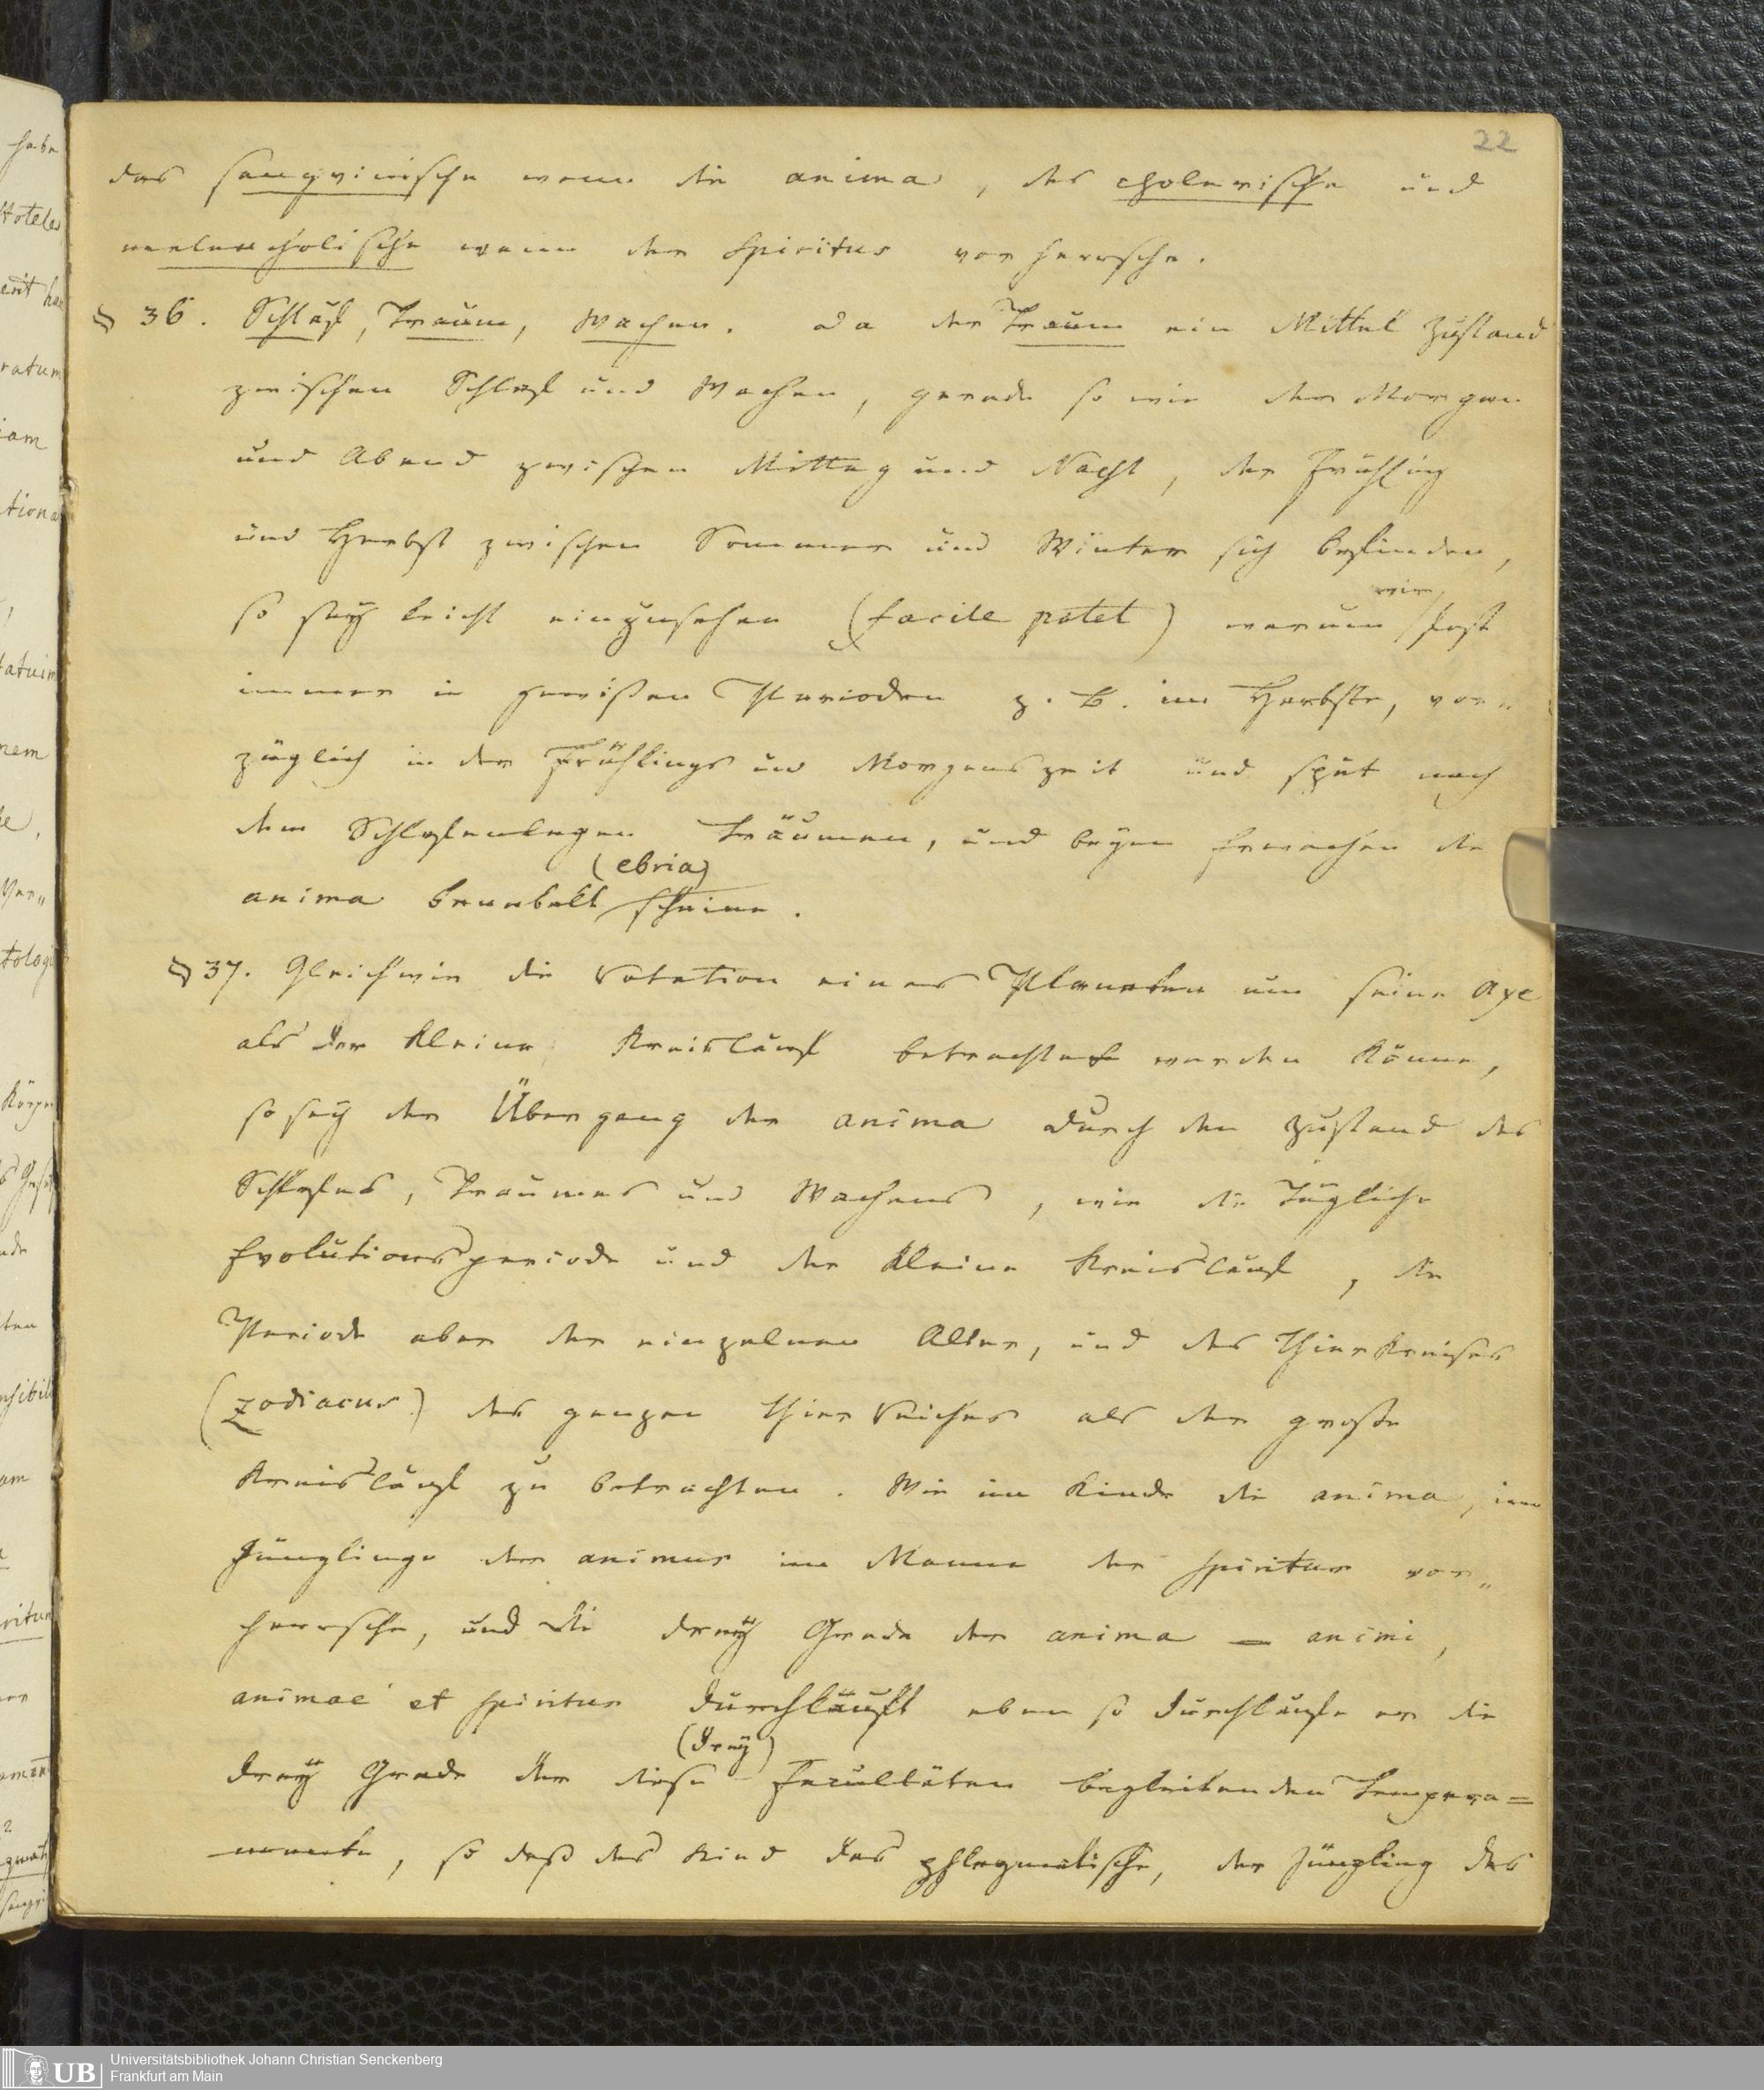 22
das sangvinische wenn die anima, das cholerische und
melancholische wenn der Spiritus vorherrsche.
§ 36. Schlaf, Traum, Wachen. Da der Traum ein Mittel Zustand
zwischen Schlaf und Wachen, gerade so wie der Morgen
und Abend zwischen Mittag und Nacht, der Frühling
und Herbst zwischen Sommer und Winter sich befinden,
wir
so sey leicht einzusehen (facile patet) warum fast
immer in gewißen Perioden z. B. im Herbste, vor„
züglich in der Frühlings und Morgenszeit und spät nach
dem Schlafenlegen träumen, und beym Erwachen die
(ebria)
anima benebelt scheine.
§ 37. Gleichwie die Rotation eines Planeten um seine Axe
als der kleine Kreislauf betrachtet werden könne,
so sey der Übergang der anima durch den Zustand des
Schlafes, Traumes und Wachens, wie die tägliche
Evolutionsperiode und der kleine Kreislauf, die
Periode aber der einzelnen Alter, und des Thierkreises
(zodiacus) des ganzen Thier Reiches als der große
Kreislauf zu betrachten. Wie im Kinde die anima, im
Jünglinge der animus im Manne der Spiritus vor„
herrsche, und die drey Grade der anima — animi,
animae et spiritus durchläuft eben so durchlaufe er die
(drey)
drey Grade der diese Facultäten begleitenden Tempera=
mente, so daß das Kind das phlegmatische, der Jüngling das
habe
stoteles
erit
ratum
iam
tiona
tatuim
nem
Ver„
tologi
Körper
nsibili
am
ritum
UB Universitätsbibliothek Johann Christian Senckenberg
Frankfurt am Main